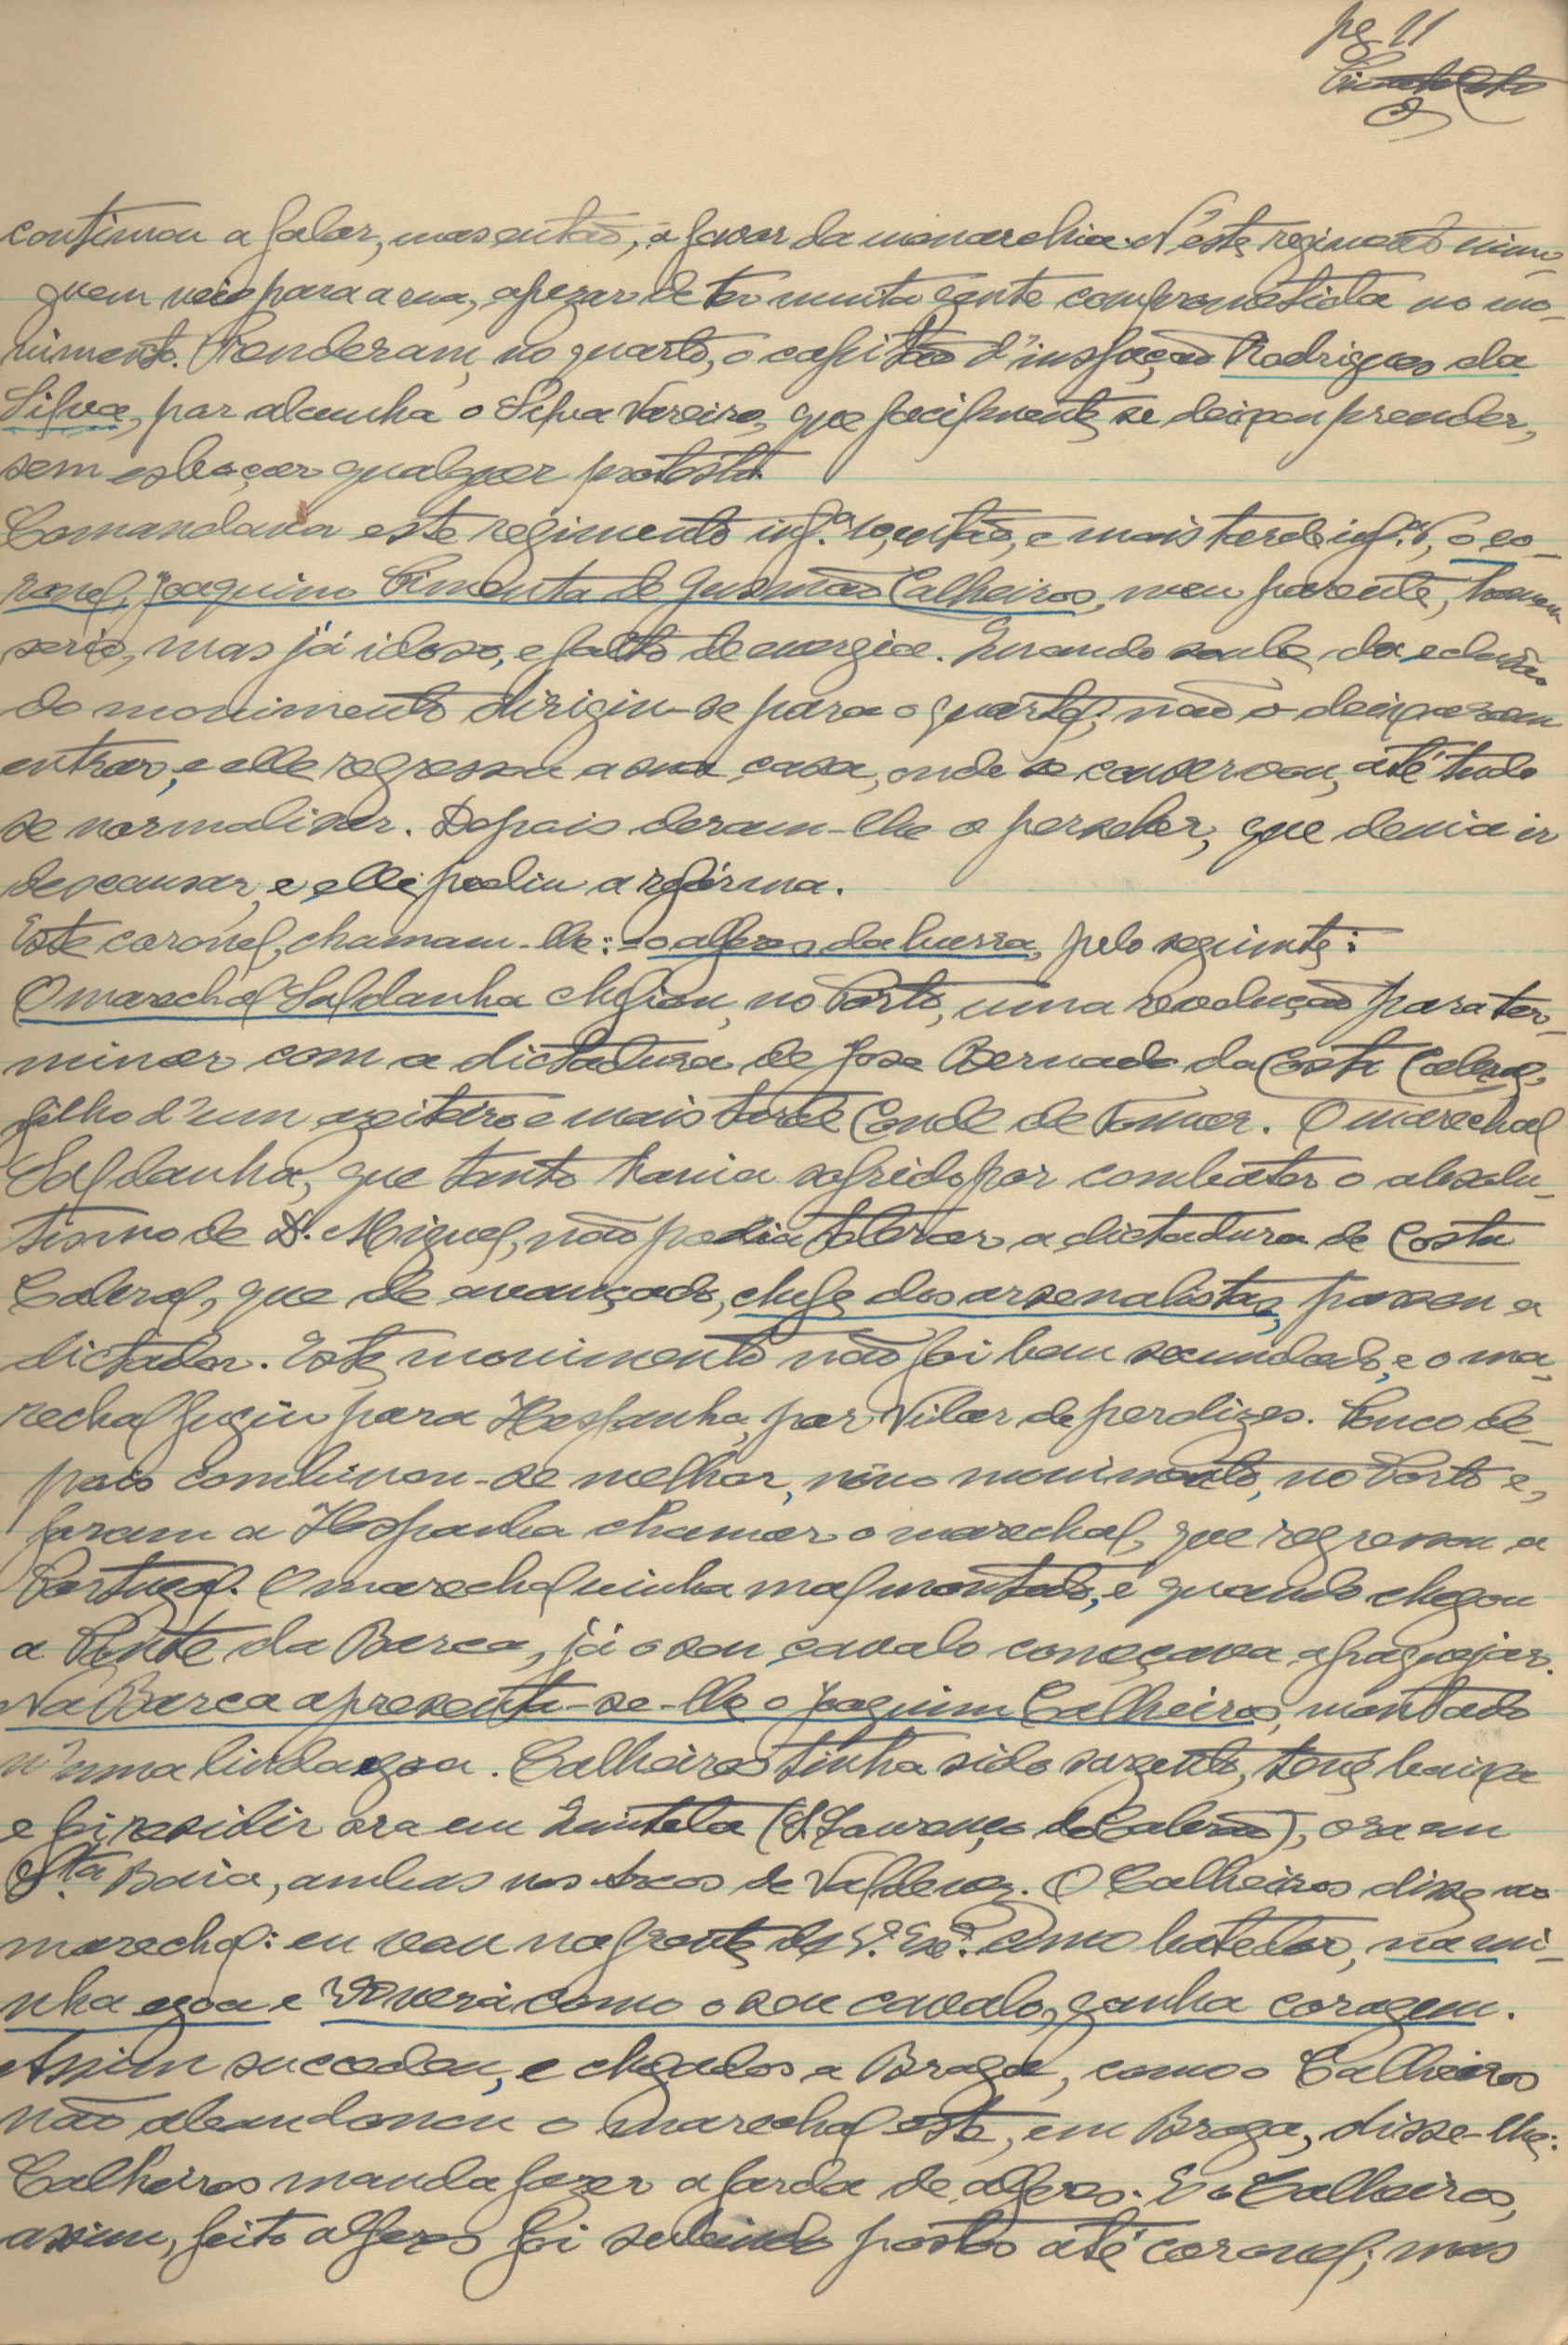 pg 11
continuou a falar, mas então, a favor da monarchia. N'este regimento nin-
guem veio para a rua, apezar de ter muita gente compromettida no mo-
vimento. Prenderam, no quartel, o capitão d'inspeção Rodrigues da
Silva, por alcunha o Silva Vareiro, que facilmente se deixou prender,
sem esboçar qualquer protesto.
Comandava este regimento inf.ª 10, então, e mais tarde inf.ª, o co-
ronel, Joaquim Pimenta de Gusmão Calheiros, meu parente, homem
serio, mas já idoso, e falto de energia. Quando soube da eclosão
do movimento dirigiu-se para o quartel; não o deixaram
entrar, e elle regressou a sua casa, onde se conservou, até tudo
se normalisar. Depois deram-lhe a perceber, que devia ir
descansar, e elle pediu a refórma.
Este coronel, chamam-lhe: = o alferes da burra, pelo seguinte:
O marechal Saldanha chefiou, no Porto, uma revolução para ter-
minar com a dictadura de José Bernardo da Costa Cabral,
filho d'um azeiteiro e mais tarde Conde de Tomar. O marechal
Saldanha, que tanto havia sofrido por combater o absolu-
tismo de D. Miguel, não podia tolerar a dictadura de Costa
Cabral, que de avançado, chefe dos arsenalistas, passou a
dictador. Este movimento não foi bem secundado, e o ma-
rechal fugiu para Hespanha, por Vilar de perdizes. Pouco de-
pois combinou-se melhor, novo movimento, no Porto e,
foram a Hespanha chamar o marechal, que regressou a
Portugal. O marechal vinha mal montado, e quando chegou
a Ponte da Barca, já o seu cavalo começava a fraquejar.
Na Barca apresenta-se-lhe o Joaquim Calheiros, montado
n'uma linda egoa. Calheiros tinha sido sargento, teve baixa
e foi residir ora em Quintela (S. Lourenço de Cabrão), ora em
S.ta Baia, ambas nos Arcos de Valdevez. O Calheiros disse ao
marechal: eu vou na frente de V. Ex.ª como batedor, na mi-
nha egoa e verá como o seu cavalo, ganha coragem.
Assim succedeu, e chegados a Braga, como o Calheiros
não abandonou o marechal este, em Braga, disse-lhe:
Calheiros manda fazer a farda de alferes. E o Calheiros,
assim, feito alferes foi subindo postos até coronel; mas